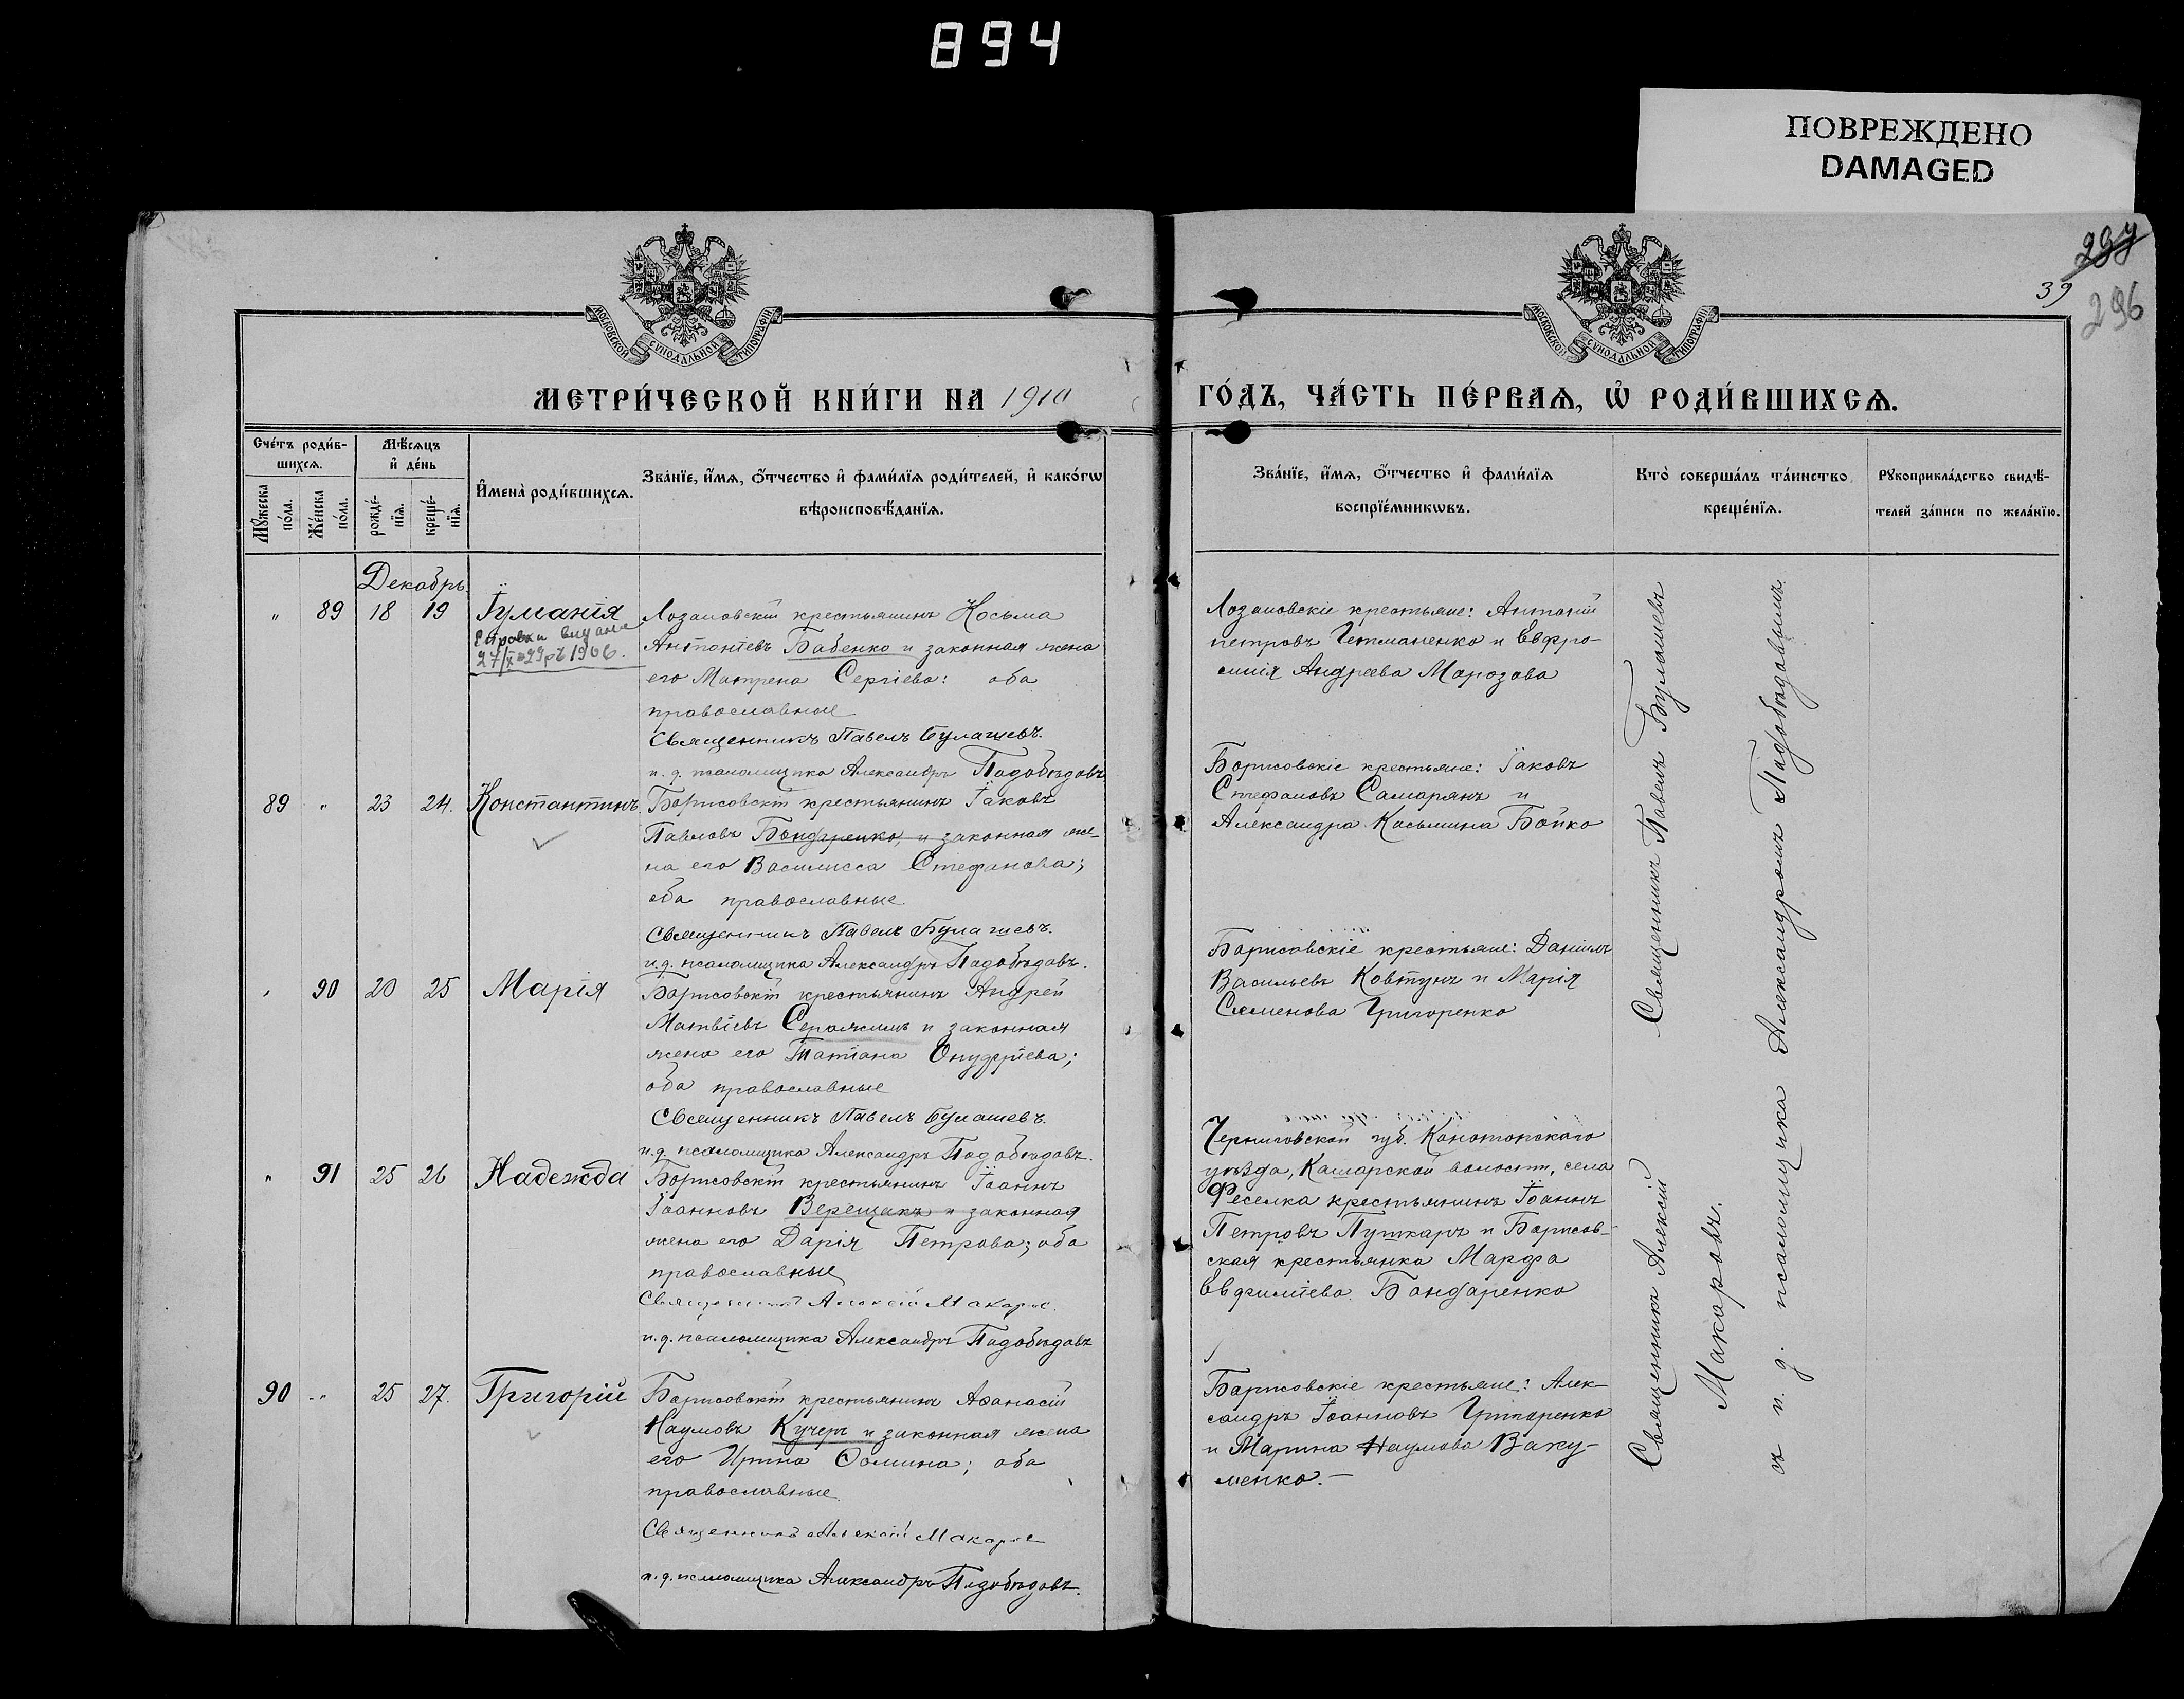 894
ПОВРЕЖДЕНО
DAMAGED
297
39
296
МОСКОВСКОЙ СѴНОДАЛЬНОЙ ТИПОГРАФІИ
МОСКОВСКОЙ СѴНОДАЛЬНОЙ ТИПОГРАФІИ
МЕТРИ́ЧЕСКОЙ КНИ́ГИ НА 1910
ГО́ДЪ, ЧА́СТЬ ПЕ́РВАѦ, Ѡ҆ РОДИ́ВШИХСѦ.
Сче́тъ роди́в-
шихсѧ.
Мѣ́сѧцъ
и҆ де́нь
Мꙋ́жеска
по́ла.
Же́нска
по́ла.
рожде́-
нїѧ.
креще́-
нїѧ.
И҆мена̀ роди́вшихсѧ.
Зва́нїе, и҆́мѧ, ѻ҆́тчество и҆ фами́лїѧ роди́телей, и҆ како́гѡ
вѣроисповѣ́данїѧ.
Зва́нїе, и҆́мѧ, ѻ҆́тчество и҆ фами́лїѧ
воспрїе́мникѡвъ.
Кто̀ соверша́лъ та́инство
креще́нїѧ.
Рꙋкоприкла́дство свидѣ́-
телей за́писи по жела́нїю.
Декабрь.
" 89 18 19 Іуманія
Справки выдана
27/X 1906.
Лозановскій крестьянинъ Косьма
Антоніевъ Бабенко и законная жена
его Матрена Сергіева: оба
православные
Священникъ Павелъ Булашевъ.
и. д. псаломщика Александръ Падобѣдовъ
Лозановскіе крестьяне: Антоній
петровъ Гетманенко и Евфро-
синія Андреева Марозова
89 " 23 24. Константинъ
Борисовскій крестьянинъ Іаковъ
Павловъ Бондаренко, и законная же-
на его Василисса Стефанова;
оба православные
Священникъ Павелъ Булашевъ.
и.д. псаломщика Александръ Падобѣдовъ.
Борисовскіе крестьяне: Іаковъ
Стефановъ Самарянъ и
Александра Касьмина Бойко
" 90 20 25 Марія
Борисовскій крестьянинъ Андрей
Матвіевъ Серажимъ и законная
жена его Татіана Онуфріева;
оба православные
Священникъ Павелъ Булашевъ.
и.д. псаломщика Александръ Падобѣдовъ.
Борисовскіе крестьяне: Даніилъ
Васильевъ Ковтунъ и Марія
Сименова Григоренко
" 91 25 26 Надежда
Борисовскій крестьянинъ Іоаннъ
Іоанновъ Верещакъ и законная
жена его Дарія Петрова; оба
православные
Священникъ Алексій Макаровъ
и. д. псаломщика Александръ Падобѣдовъ
Черниговской губ. Конотопскаго
уѣзда, Кашарской волости, села
Феселка крестьянинъ Іоаннъ
Петровъ Пушкаръ и Борисов-
ская крестьянка Марфа
Евфиміева Бандаренко
90 " 25 27. Григорій
Борисовскій крестьянинъ Аѳанасій
Наумовъ Кучеръ и законная жена
его Ирина Ѳомина; оба
православные
Священникъ Алексій Макаровъ
и. д. псаломщика Александръ Падобѣдовъ.
Борисовскіе крестьяне: Алек-
сандръ Іоанновъ Григоренко
и Марина Наумова Баку-
менко.—
Священникъ Павелъ Булашевъ
Священникъ Алексій
Макаровъ.
съ и. д. псаломщика Александромъ Падобѣдовымъ.